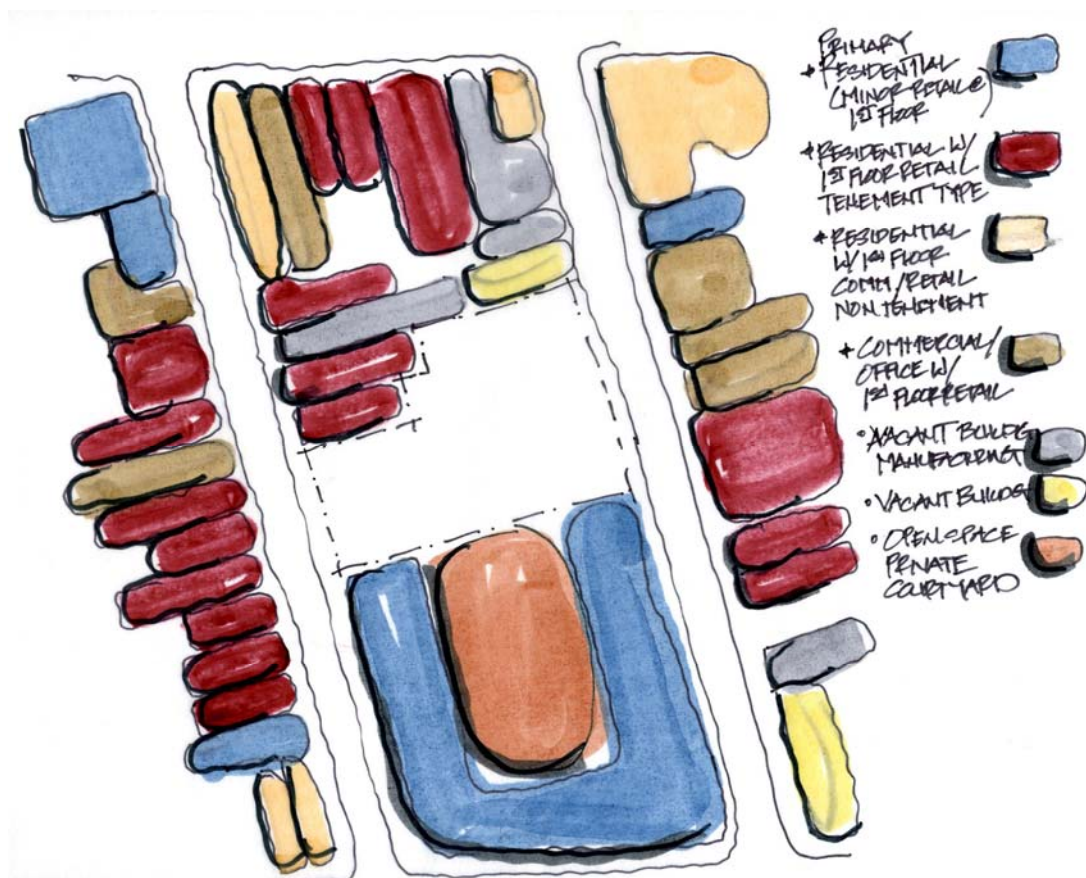 PRIMARY
+ RESIDENTIAL
(MINOR RETAIL @)
1ST FLOOR
+ RESIDENTIAL W/
1ST FLOOR RETAIL
TENEMENT TYPE
+ RESIDENTIAL
W/ 1ST FLOOR
COMM/RETAIL
NON TENEMENT
+ COMMERCIAL/
OFFICE W/
1ST FLOOR RETAIL
• VACANT BUILDG
• VACANT BUILDG
• OPEN SPACE
PRIVATE
COURTYARD